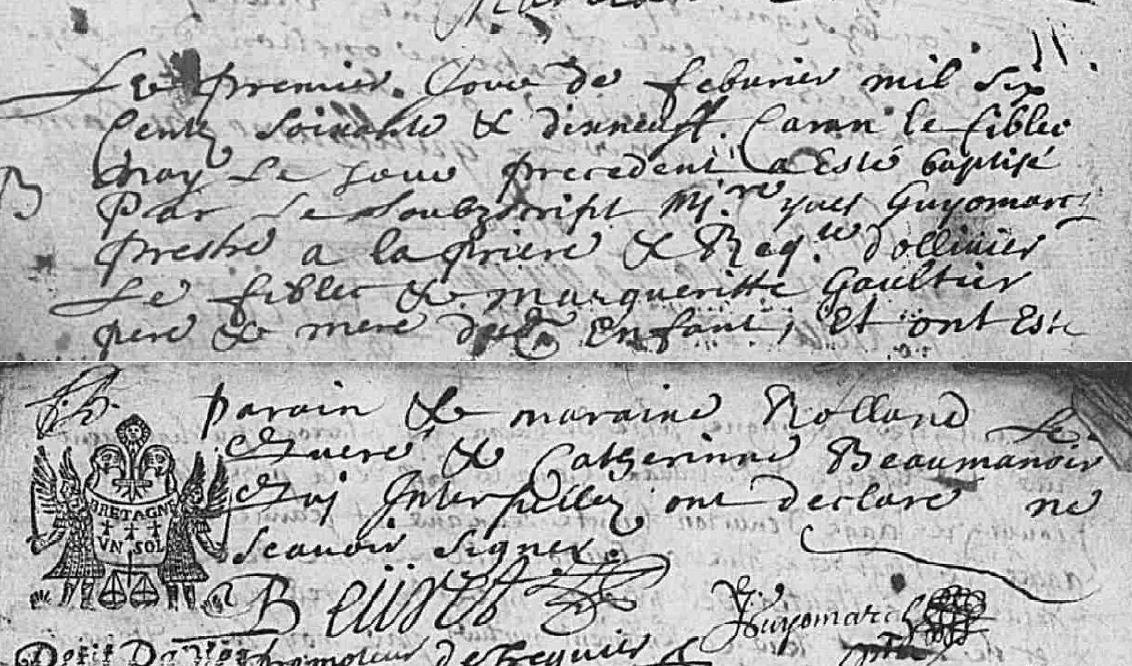 Le premier Jour de feburier mil six
Centz Soixante & dixneuff. Caran le fiblec
nay Le Jour precedent a Esté baptisé
Par Le Soubzscript Mi.re yves Guyomarch
prestre a la priere & Req.te d'ollivier
Le fiblec & Margueritte Gaultier
pere & mere dud. Enfant, Et ont Esté
Parain & maraine Rolland Le
Quere & Catherinne Beaumanoir
Qui Interpellez ont declaré ne
Scauoir Signer.
BRETAGNE
VN SOL
Guyomarch